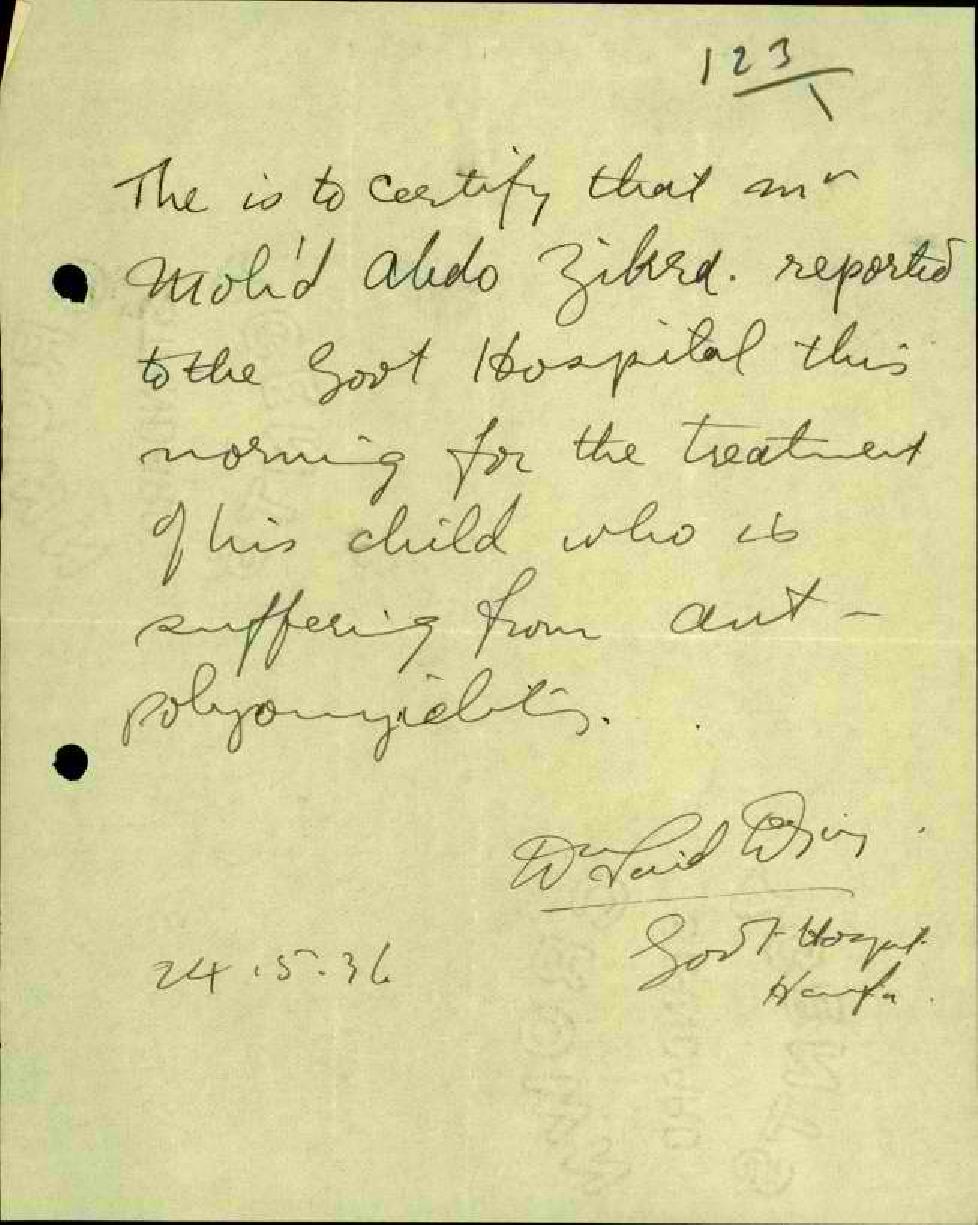 123
1
The is to certify that Mr
Moh'd Abdo reported
to the Govt Hospital this
morning for the treatment
of his child who is
suffering from
Dr Said
Govt Hospit.
24.5.36
Haifa.